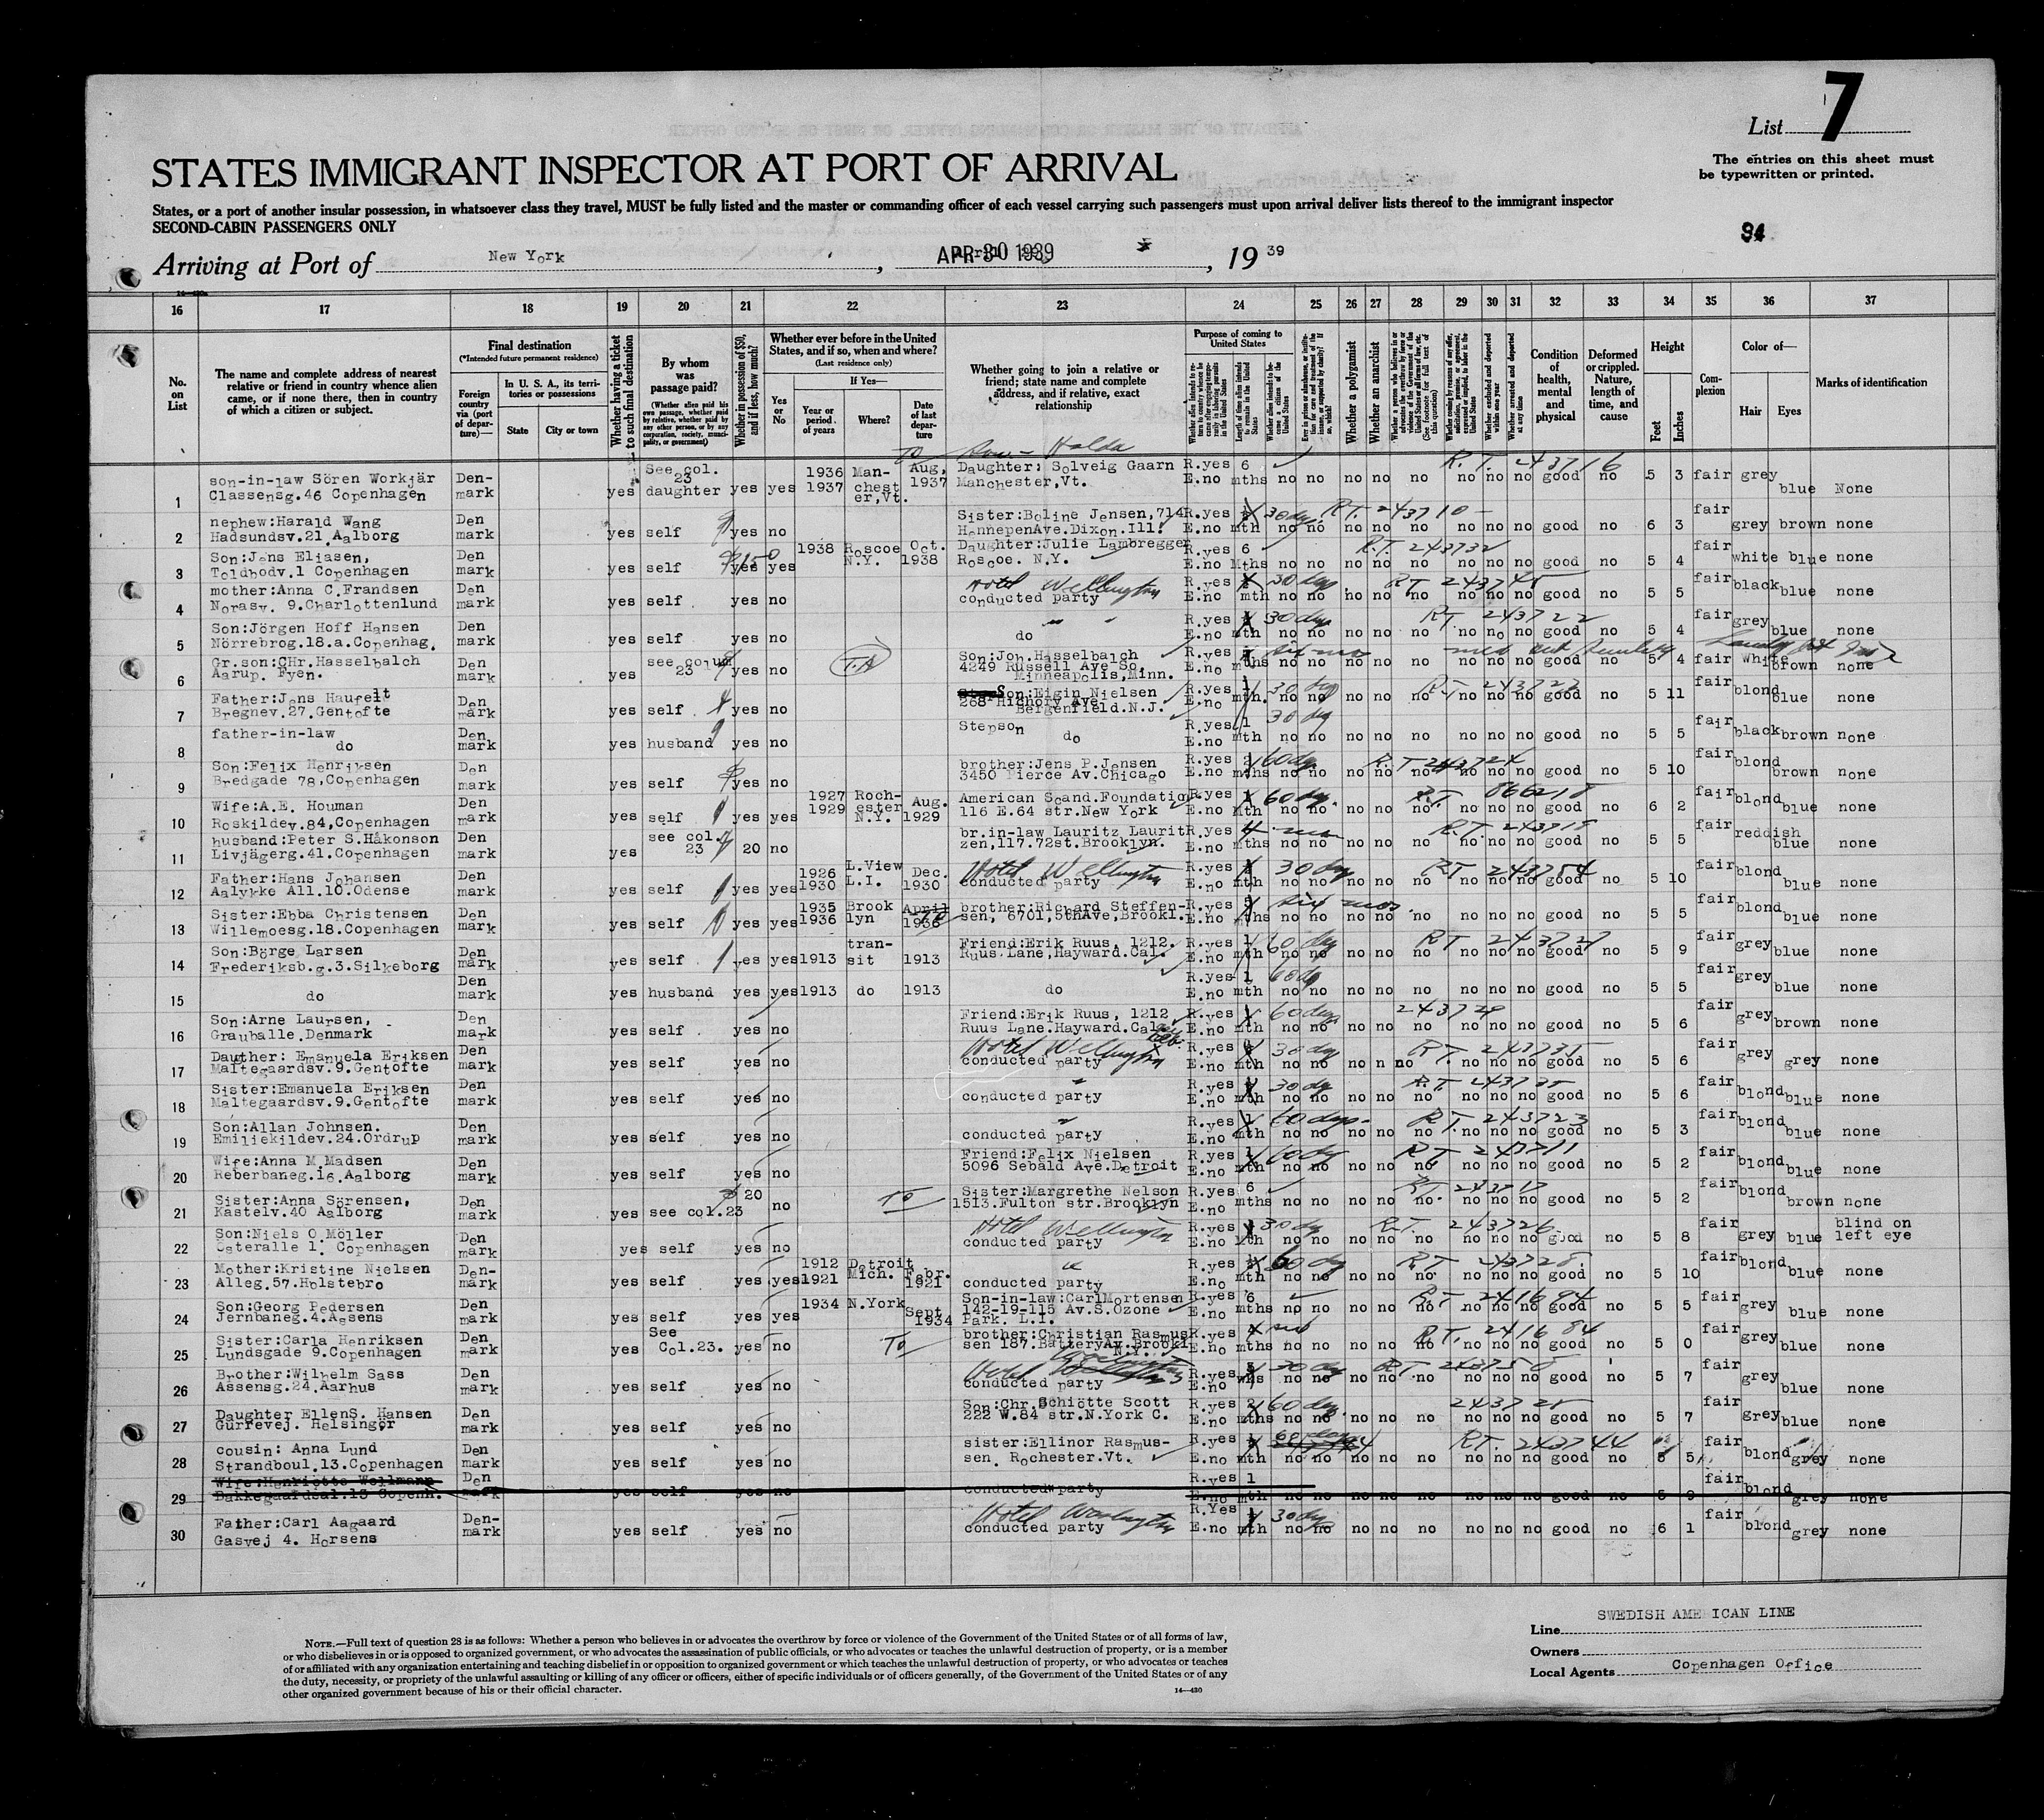 List 7
The entries on this sheet must
be typewritten or printed.
STATES IMMIGRANT INSPECTOR AT PORT OF ARRIVAL
States, or a port of another insular possession, in whatsoever class they travel, MUST be fully listed and the master or commanding officer of each vessel carrying such passengers must upon arrival deliver lists thereof to the immigrant inspector
SECOND-CABIN PASSENGERS ONLY
94
Arriving at Port of New York, APR 30 1939, 1939
16 17 18 19 20 21 22 23 24 25 26 27 28 29 30 31 32 33 34 35 36 37
No. on List
The name and complete address of nearest relative or friend in country whence alien came, or if none there, then in country of which a citizen or subject.
Final destination
(*Intended future permanent residence)
Foreign country via (port of departure)—
In U. S. A., its territories or possessions
State
City or town
Whether having a ticket to such final destination
By whom was passage paid?
(Whether alien paid his own passage, whether paid by relative, whether paid by any other person, or by any corporation, society, municipality, or government)
Whether in possession of $50, and if less, how much?
Whether ever before in the United States, and if so, when and where?
(Last residence only)
Yes or No
If Yes—
Year or period of years
Where?
Date of last departure
Whether going to join a relative or friend; state name and complete address, and if relative, exact relationship
Purpose of coming to United States
Length of time alien intends to remain in the United States
Whether alien intends to become a citizen of the United States
Whether a polygamist
Whether an anarchist
Condition of health, mental and physical
Deformed or crippled. Nature, length of time, and cause
Height
Feet
Inches
Complexion
Color of—
Hair
Eyes
Marks of identification
1 son-in-law Sören Workjär Classensg.46 Copenhagen Denmark yes See col. 23 daughter yes yes 1936 1937 Manchester,Vt. Aug, 1937 Daughter: Solveig Gaarn Manchester,Vt. R.yes E.no 6 mths no no no no no no no no good no 5 3 fair grey blue None R.T. 243716
2 nephew:Harald Wang Hadsundsv.21 Aalborg Denmark yes self yes no Sister:Boline Jensen,714 HennepenAve.Dixon.Ill. R.yes E.no mth 30 days R.T. 243710 no no no no no no no no good no 6 3 fair grey brown none
3 Son:Jens Eliasen, Toldbodv.1 Copenhagen Denmark yes self yes yes 150 1938 Roscoe N.Y. Oct. 1938 Daughter:Julie Lambregger Roscoe. N.Y. R.yes E.no 6 Mths R.T. 243732 no no no no no no no no good no 5 4 fair white blue none
4 mother:Anna C.Frandsen Norasv. 9.Charlottenlund Denmark yes self yes no Hotel Wellington conducted party R.yes E.no mth 30 days RT 243745 no no no no no no no no good no 5 5 fair black blue none
5 Son:Jörgen Hoff Hansen Nörrebrog.18.a.Copenhag. Denmark yes self yes no do R.yes E.no mth 30 days RT. 243722 no no no no no no no no good no 5 4 fair grey blue none
6 Gr.son:CHr.Hasselbalch Aarup. Fyen. Denmark yes see colum 23 yes no Son:Joh.Hasselbalch 4249 Russell Ave So. Minneapolis,Minn. R.yes E.no mths no no no no no no no no good no 5 4 fair white brown none
7 Father:Jens Haufelt Bregnev.27.Gentofte Denmark yes self yes no Son:Eigin Nielsen 268 Hichory Ave Bergenfield.N.J. R.yes E.no 1 mth. 30 days RT 243727 no no no no no no no no good no 5 11 fair blond blue none
8 father-in-law do Denmark yes husband yes no Stepson do R.yes E.no 1 mth 30 days no no no no no no no no good no 5 5 fair black brown none
9 Son:Felix Henriksen Bredgade 78,Copenhagen Denmark yes self yes no brother:Jens P.Jensen 3450 Pierce Av.Chicago R.yes E.no 2 mths 60 days R.T 243724 no no no no no no no no good no 5 10 fair blond brown none
10 Wife:A.E. Houman Roskildev.84,Copenhagen Denmark yes self yes yes 1927 1929 Rochester N.Y. Aug. 1929 American Scand.Foundatio 116 E.64 str.New York R.yes E.no mth 60 days. R.T. 866218 no no no no no no no no good no 6 2 fair blond blue none
11 husband:Peter S.Håkonson Livjägerg.41.Copenhagen Denmark yes see col. 23 20 no br.in-law Lauritz Lauritzen,117.72st.Brooklyn. R.yes E.no 4 mths R.T. 243718 no no no no no no no no good no 5 5 fair reddish blue none
12 Father:Hans Johansen Aalykke All.10.Odense Denmark yes self yes yes 1926 1930 L.View L.I. Dec. 1930 Hotel Wellington conducted party R.yes E.no mth 30 days RT 243754 no no no no no no no no good no 5 10 fair blond blue none
13 Sister:Ebba Christensen Willemoesg.18.Copenhagen Denmark yes self yes yes 1935 1936 Brooklyn April 1936 brother:Richard Steffensen, 6701,5thAve,Brookl. R.yes E.no mths six mos. no no no no no no no no good no 5 5 fair blond blue none
14 Son:Börge Larsen Frederiksb.g.3.Silkeborg Denmark yes self yes yes 1913 transit 1913 Friend:Erik Ruus, 1212. Ruus Lane,Hayward.Cal. R.yes E.no 1 mth 60 days RT 243727 no no no no no no no no good no 5 9 fair grey blue none
15 do Denmark yes husband yes yes 1913 do 1913 do R.yes E.no 1 mth 60 days no no no no no no no no good no 5 5 fair grey blue none
16 Son:Arne Laursen, Grauballe.Denmark Denmark yes self yes no Friend:Erik Ruus, 1212 Ruus Lane.Hayward.Cal. R.yes E.no mth 60 days 243729 no no no no no no no no good no 5 6 fair grey brown none
17 Dauther: Emanuela Eriksen Maltegaardsv.9.Gentofte Denmark yes self yes no Hotel Wellington conducted party R.yes E.no mth 30 days RT. 243735 no no no n no no no no good no 5 6 fair grey grey none
18 Sister:Emanuela Eriksen Maltegaardsv.9.Gentofte Denmark yes self yes no conducted party R.yes E.no mth 30 days R.T. 243735 no no no no no no no no good no 5 6 fair blond blue none
19 Son:Allan Johnsen. Emiliekildev.24.Ordrup Denmark yes self yes no conducted party R.yes E.no 1 mth 60 days. RT. 243723 no no no no no no no no good no 5 3 fair blond blue none
20 Wife:Anna M.Madsen Reberbaneg.16.Aalborg Denmark yes self yes no Friend:Felix Nielsen 5096 Sebald Ave.Detroit R.yes E.no 1 mth 60 days RT 243711 no no no no no no no no good no 5 2 fair blond blue none
21 Sister:Anna Sörensen, Kastelv.40 Aalborg Denmark yes see col.23 $ 20 no Sister:Margrethe Nelson 1513.Fulton str.Brooklyn R.yes E.no 6 mths RT 243717 no no no no no no no no good no 5 2 fair blond brown none
22 Son:Niels O.Möller Österalle 1. Copenhagen Denmark yes self yes no Hotel Wellington conducted party R.yes E.no mth 30 days R.T. 243726 no no no no no no no no good no 5 8 fair grey blue blind on left eye
23 Mother:Kristine Nielsen Alleg.57.Holstebro Denmark yes self yes yes 1912 1921 Detroit Mich. Febr. 1921 conducted party R.yes E.no mth 60 days RT 243728. no no no no no no no no good no 5 10 fair blond blue none
24 Son:Georg Pedersen Jernbaneg.4.Assens Denmark yes self yes yes 1934 N.York Sept 1934 Son-in-law:CarlMortensen 142-19-115 Av.S.Ozone Park. L.I. R.yes E.no 6 mths R.T. 241684 no no no no no no no no good no 5 5 fair grey blue none
25 Sister:Carla Henriksen Lundsgade 9.Copenhagen Denmark yes See Col.23. yes no brother:Christian Rasmussen 187.BatteryAv.Brookl N.Y. R.yes E.no mths R.T. 241684 no no no no no no no no good no 5 0 fair grey blue none
26 Brother:Wilhelm Sass Assensg.24.Aarhus Denmark yes self yes no Hotel conducted party R.yes E.no 3 wks 30 days RT no no no no no no no no good no 5 7 fair grey blue none
27 Daughter EllenS. Hansen Gurrevej. Helsingør Denmark yes self yes no Son:Chr.Schiötte Scott 222 W.84 str.N.York C. R.yes E.no 2 mths 60 days. 243725 no no no no no no no no good no 5 7 fair grey blue none
28 cousin: Anna Lund Strandboul.13.Copenhagen Denmark yes self yes no sister:Ellinor Rasmussen. Rochester.Vt. R.yes E.no mth 60 days RT. 243744 no no no no no no no no good no 5 5 fair blond grey none
29 Wife:Henriette Wollmann Bakkegaardsal.13 Copenh. Denmark yes self yes no conducted party R.yes E.no 1 mth no no no no no no no no good no 5 9 fair blond grey none
30 Father:Carl Aagaard Gasvej 4. Horsens Denmark yes self yes no Hotel conducted party R.Yes E.no mth 30 days no no no no no no no no good no 6 1 fair blond grey none
NOTE.—Full text of question 28 is as follows: Whether a person who believes in or advocates the overthrow by force or violence of the Government of the United States or of all forms of law,
or who disbelieves in or is opposed to organized government, or who advocates the assassination of public officials, or who advocates or teaches the unlawful destruction of property, or is a member
of or affiliated with any organization entertaining and teaching disbelief in or opposition to organized government or which teaches the unlawful destruction of property, or who advocates or teaches
the duty, necessity, or propriety of the unlawful assaulting or killing of any officer or officers, either of specific individuals or of officers generally, of the Government of the United States or of any
other organized government because of his or their official character.
14—430
Line SWEDISH AMERICAN LINE
Owners
Local Agents Copenhagen Office